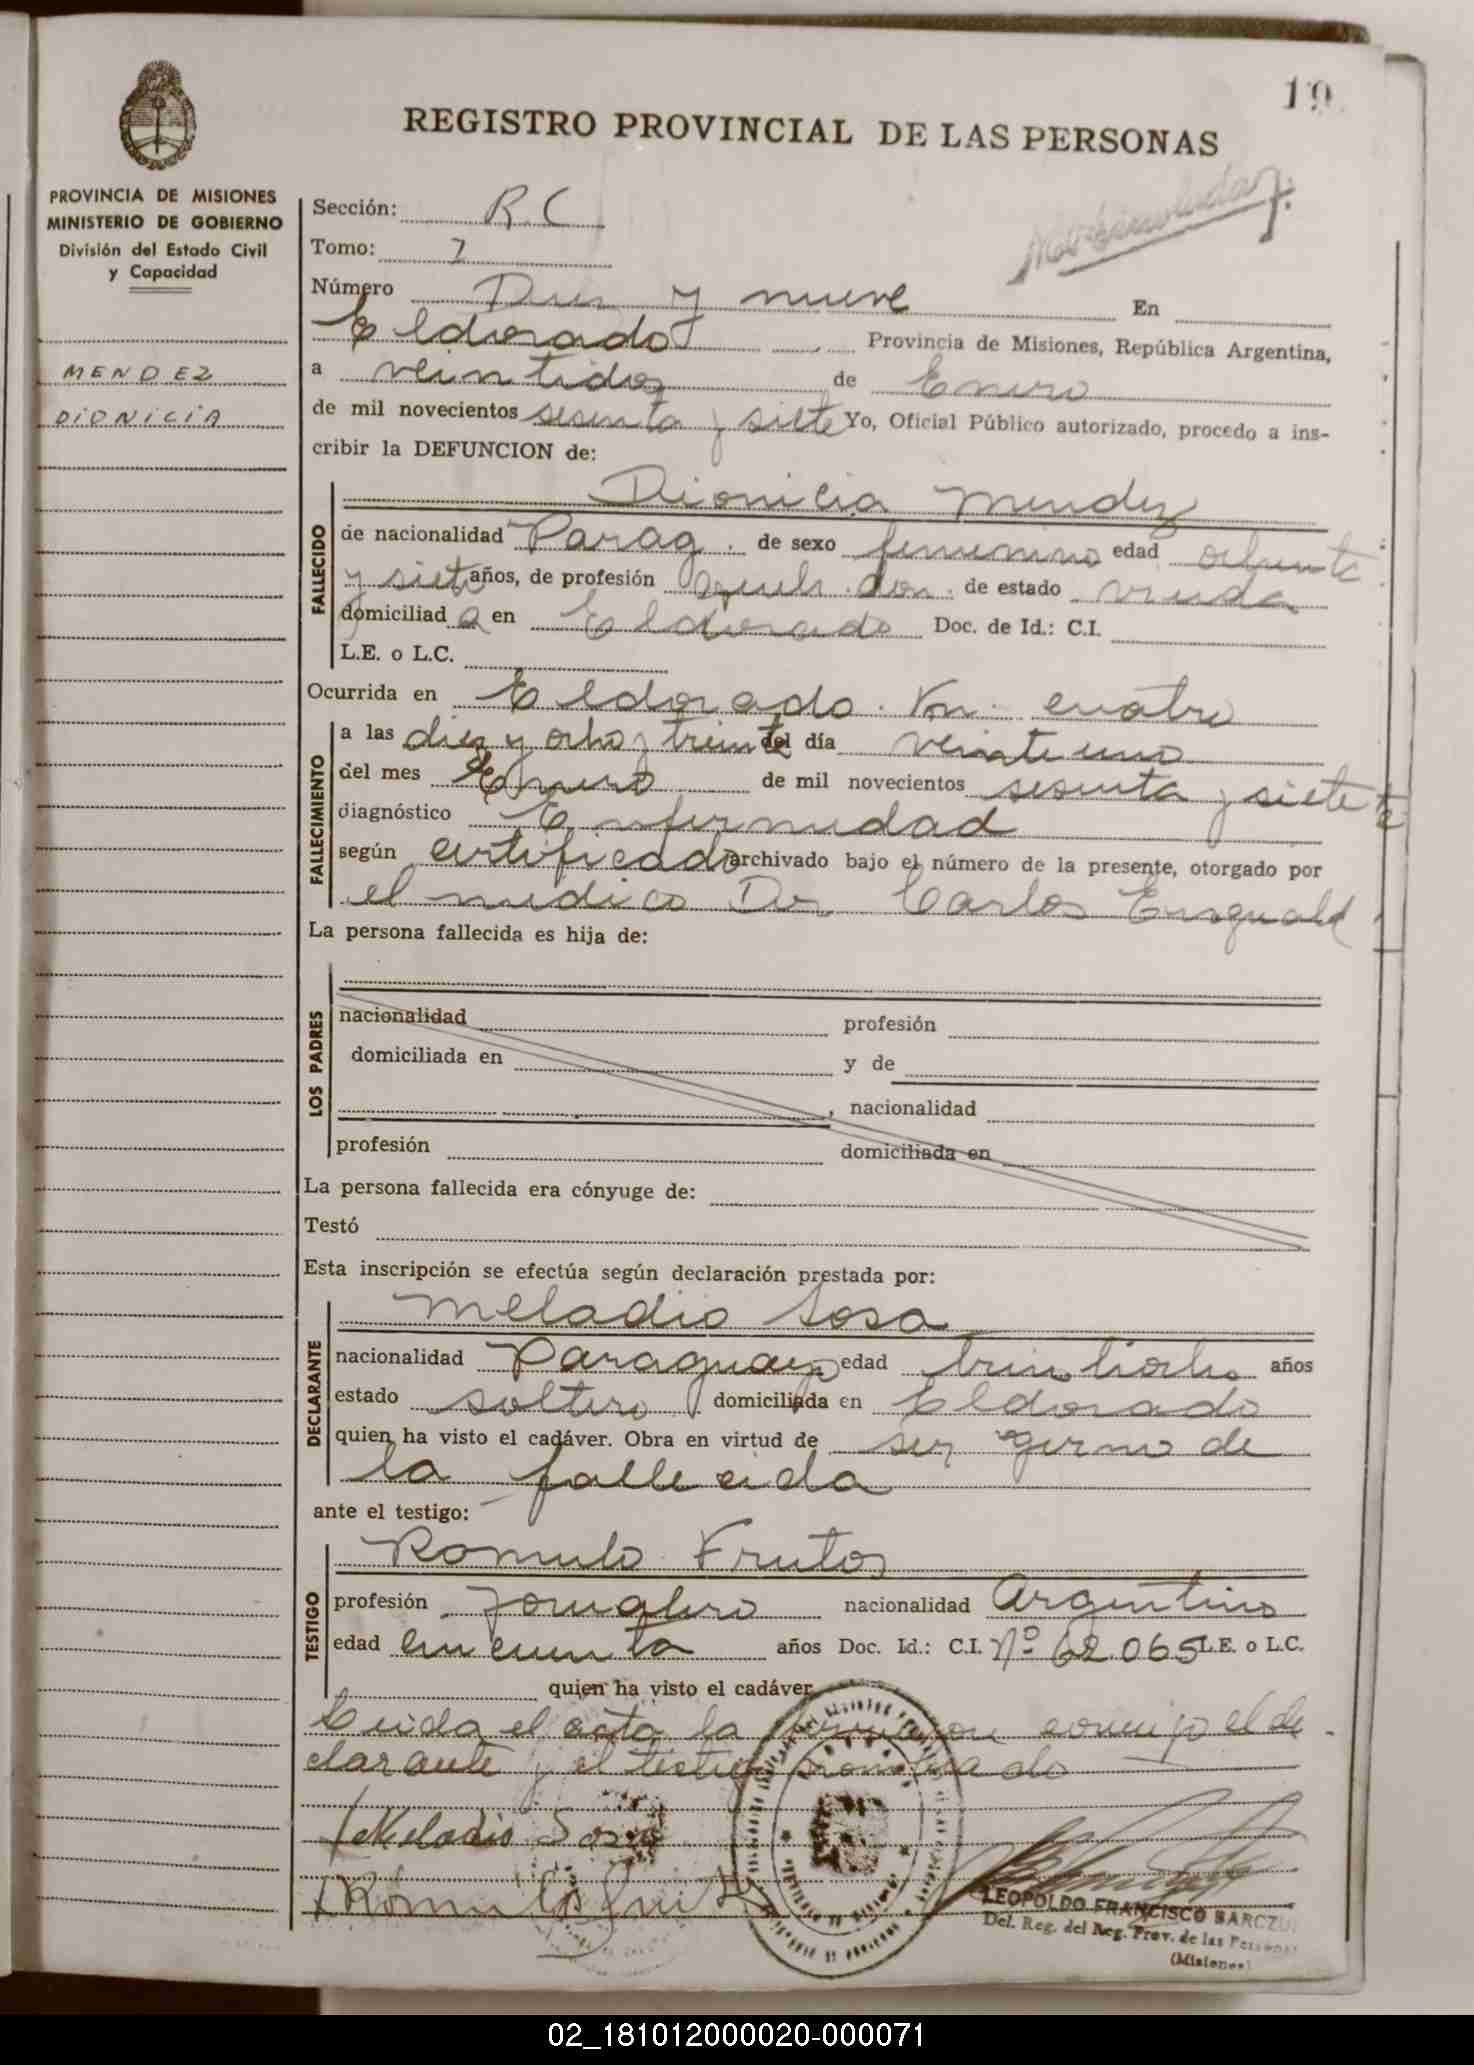 19
REGISTRO PROVINCIAL DE LAS PERSONAS
PROVINCIA DE MISIONES
MINISTERIO DE GOBIERNO
División del Estado Civil
y Capacidad
MENDEZ
DIONICIA
Sección: R.C
Tomo: 7
Número Diez y nueve En
Eldorado Provincia de Misiones, República Argentina,
a veintidos de Enero
de mil novecientos sesenta y siete Yo, Oficial Público autorizado, procedo a ins-
cribir la DEFUNCION de:
Dionicia Mendez
FALLECIDO
de nacionalidad Parag. de sexo femenino edad ochenta
y siete años, de profesión queh. dom. de estado viuda
domiciliad a en Eldorado Doc. de Id.: C.I.
L.E. o L.C.
Ocurrida en Eldorado. Km. cuatro
FALLECIMIENTO
a las diez y ocho y treinta del día veinte uno
del mes Enero de mil novecientos sesenta y siete
diagnóstico Enfermedad
según certificado archivado bajo el número de la presente, otorgado por
el medico Dr Carlos
La persona fallecida es hija de:
LOS PADRES
nacionalidad profesión
domiciliada en y de
, nacionalidad
profesión domiciliada en
La persona fallecida era cónyuge de:
Testó
Esta inscripción se efectúa según declaración prestada por:
DECLARANTE
Meladio Sosa
nacionalidad Paraguayo edad treintiocho años
estado soltero domiciliada en Eldorado
quien ha visto el cadáver. Obra en virtud de ser yerno de
la fallecida
ante el testigo:
TESTIGO
Romulo Frutos
profesión Jornalero nacionalidad Argentino
edad cincuenta años Doc. Id.: C.I. Nº 62.065 L.E. o L.C.
quien ha visto el cadáver
Leida el acta la firmaron conmigo el de-
clarante y el testigo nombrado
Meladio Sosa
Romulo Frutos
LEOPOLDO FRANCISCO BARCZU
Del. Reg. del Reg. Prov. de las Personas
(Misiones)
02_181012000020-000071